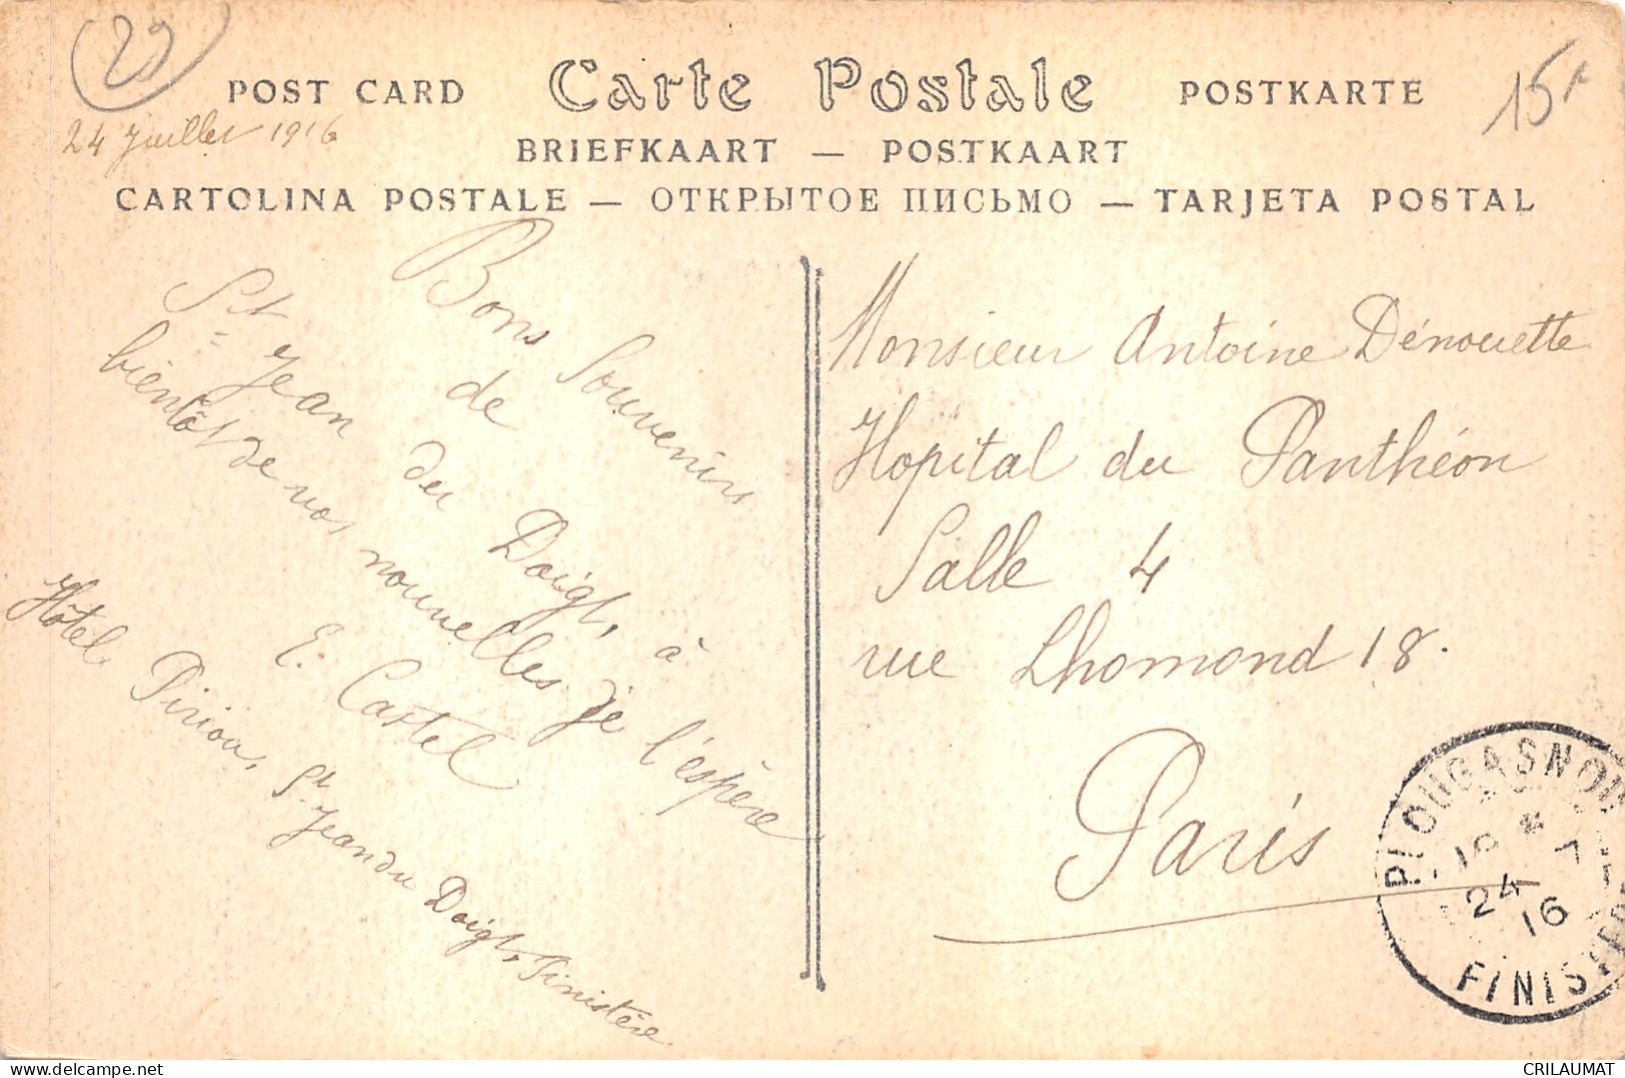 29
15f
POST CARD Carte Postale POSTKARTE
24 Juillet 1916
BRIEFKAART — POSTKAART
CARTOLINA POSTALE — ОТКРЫТОЕ ПИСЬМО — TARJETA POSTAL
Bons Souvenirs
de
St Jean du Doigt, à
bientôt de vos nouvelles je l'espère
E. Castel
Hôtel Piriou, St Jean du Doigt, Finistère
Monsieur Antoine Dénouette
Hopital du Panthéon
Salle 4
rue Lhomond 18.
Paris
PLOUGASNOU
16 * 7
24 16
FINISTERE
delcampe.net
CRILAUMAT